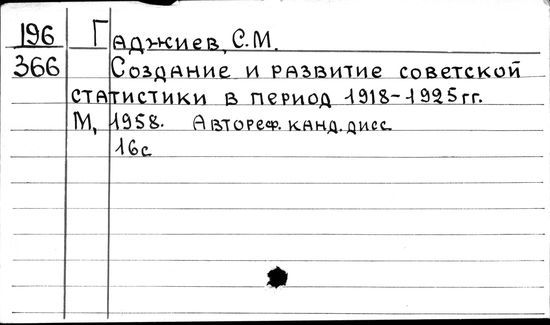 196 Гаджиев, С.М.
366 Создание и развитие советской
статистики в период 1918-1925гг.
М, 1958. Автореф. канд. дисс
16с